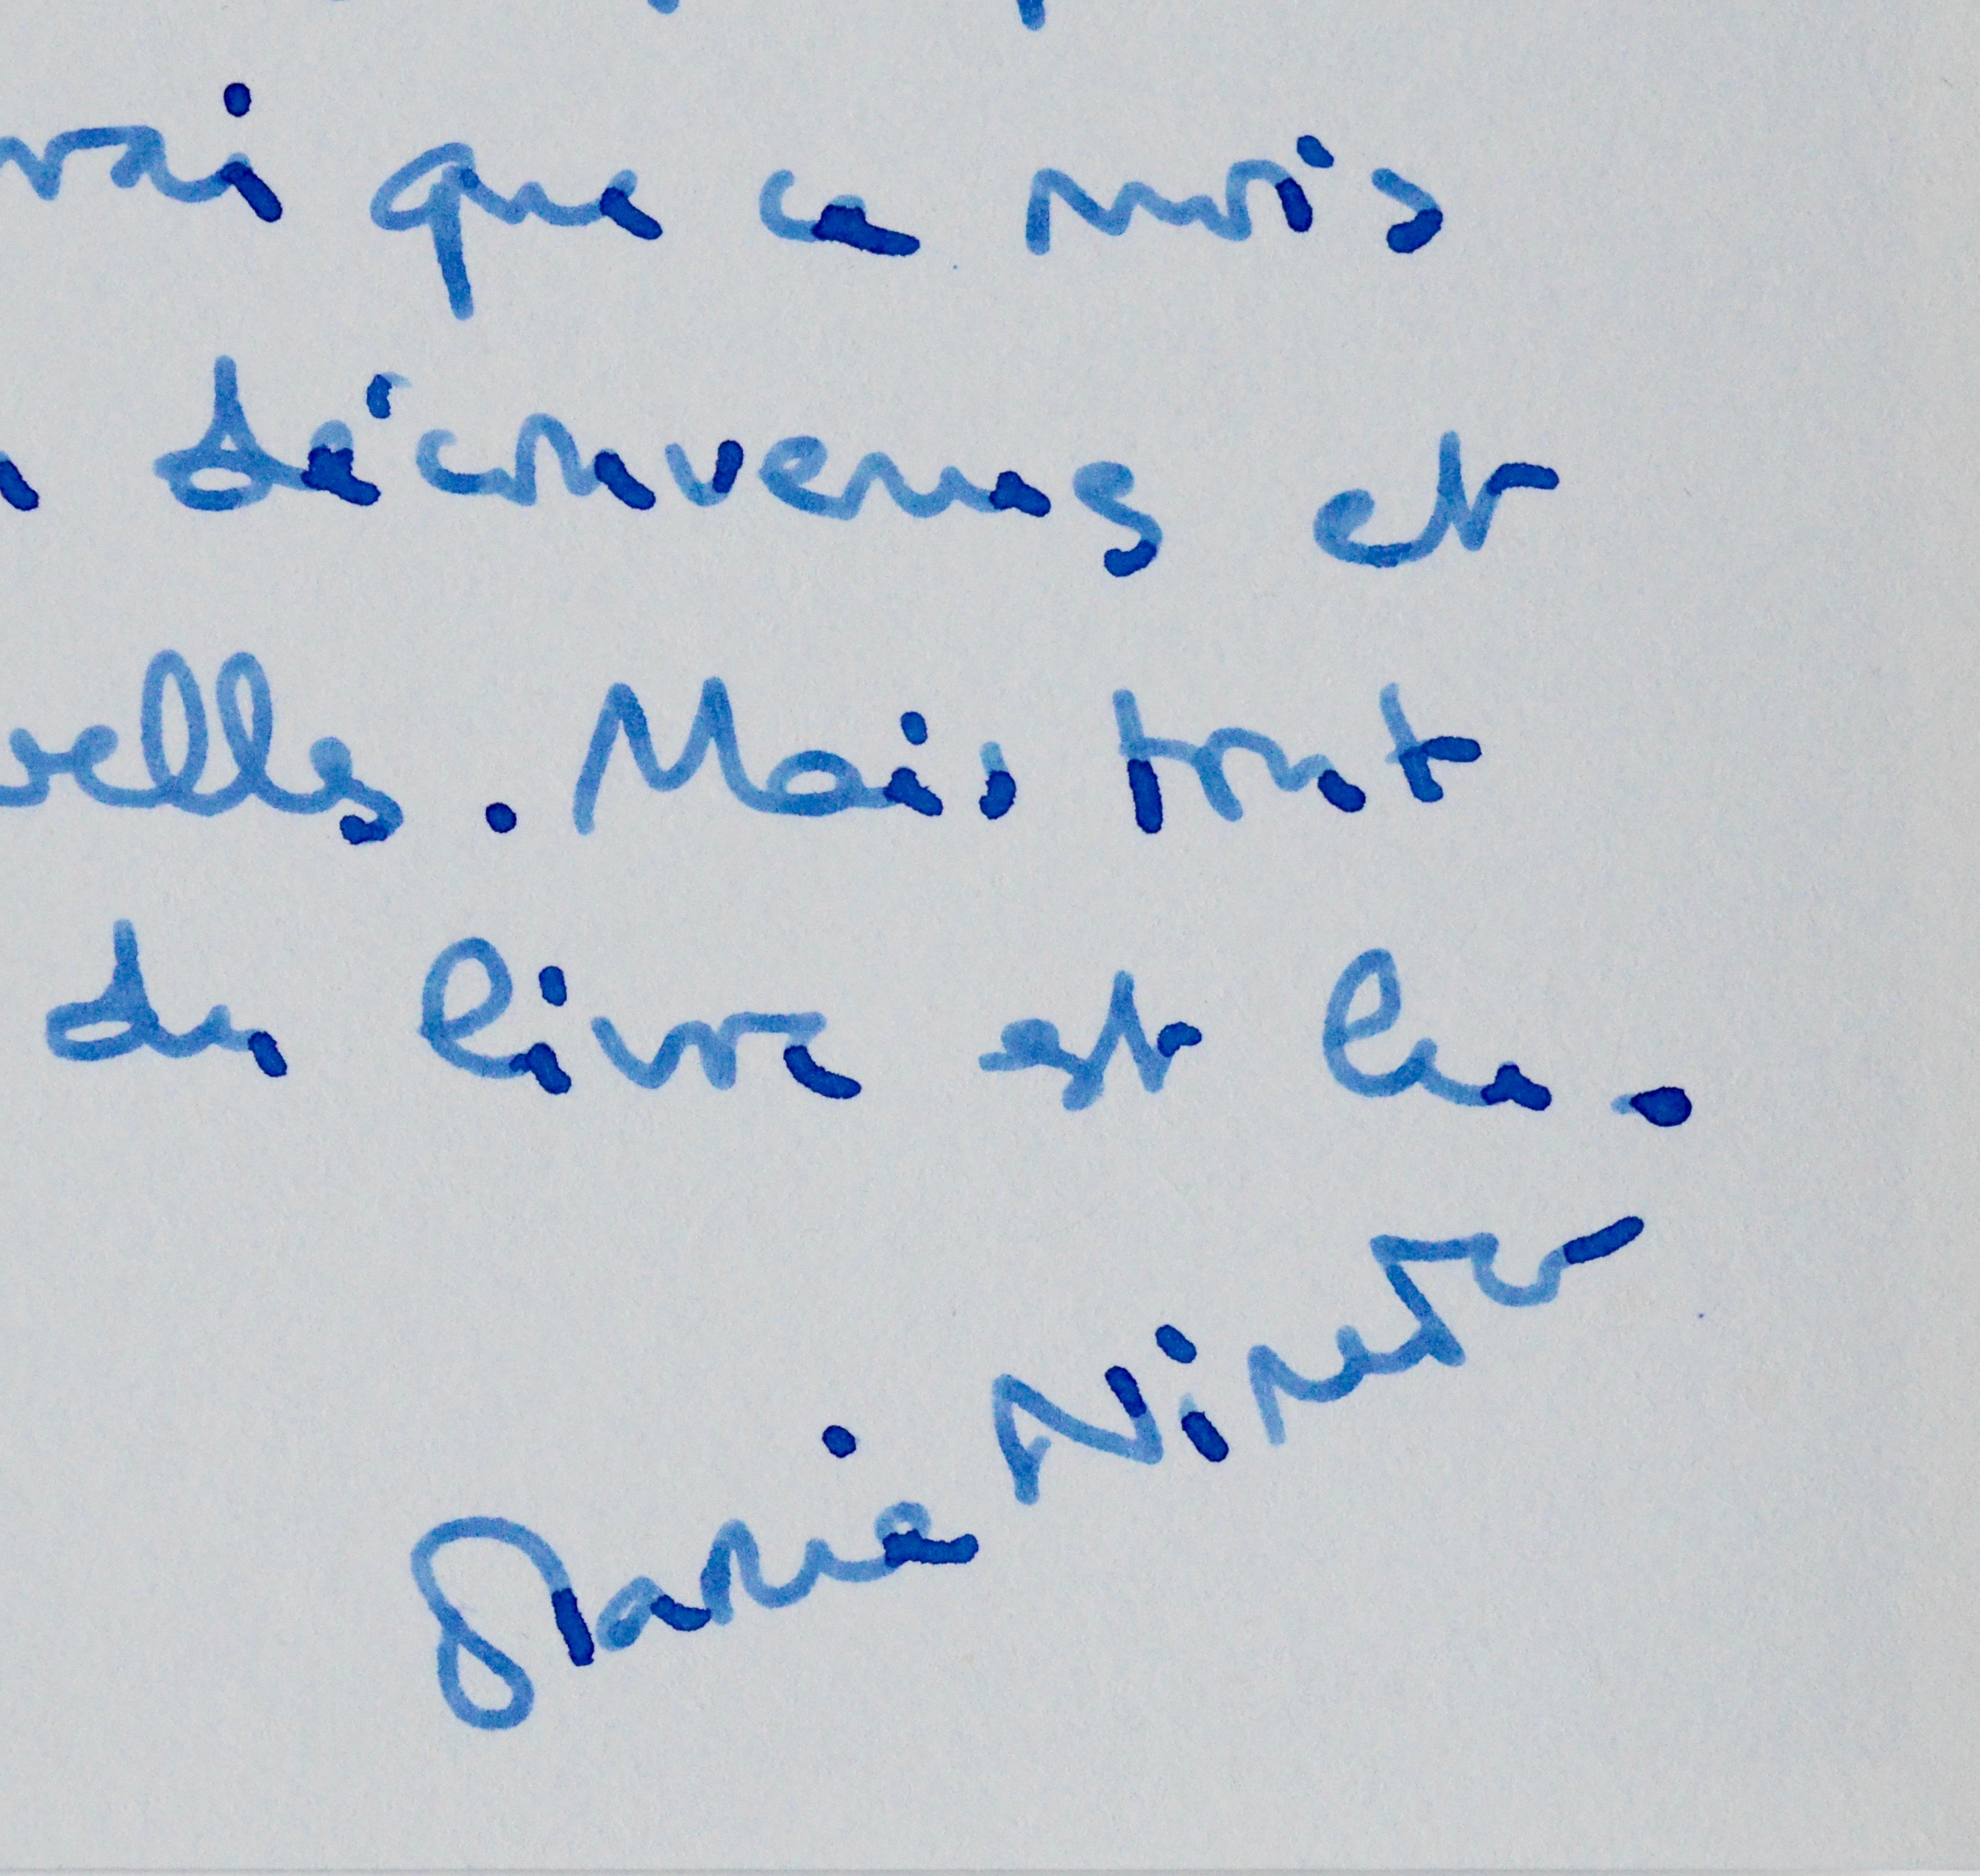 vrai que ce mois
découvertes et
velles. Mais tout
du livre est lu.
Marie Nimier